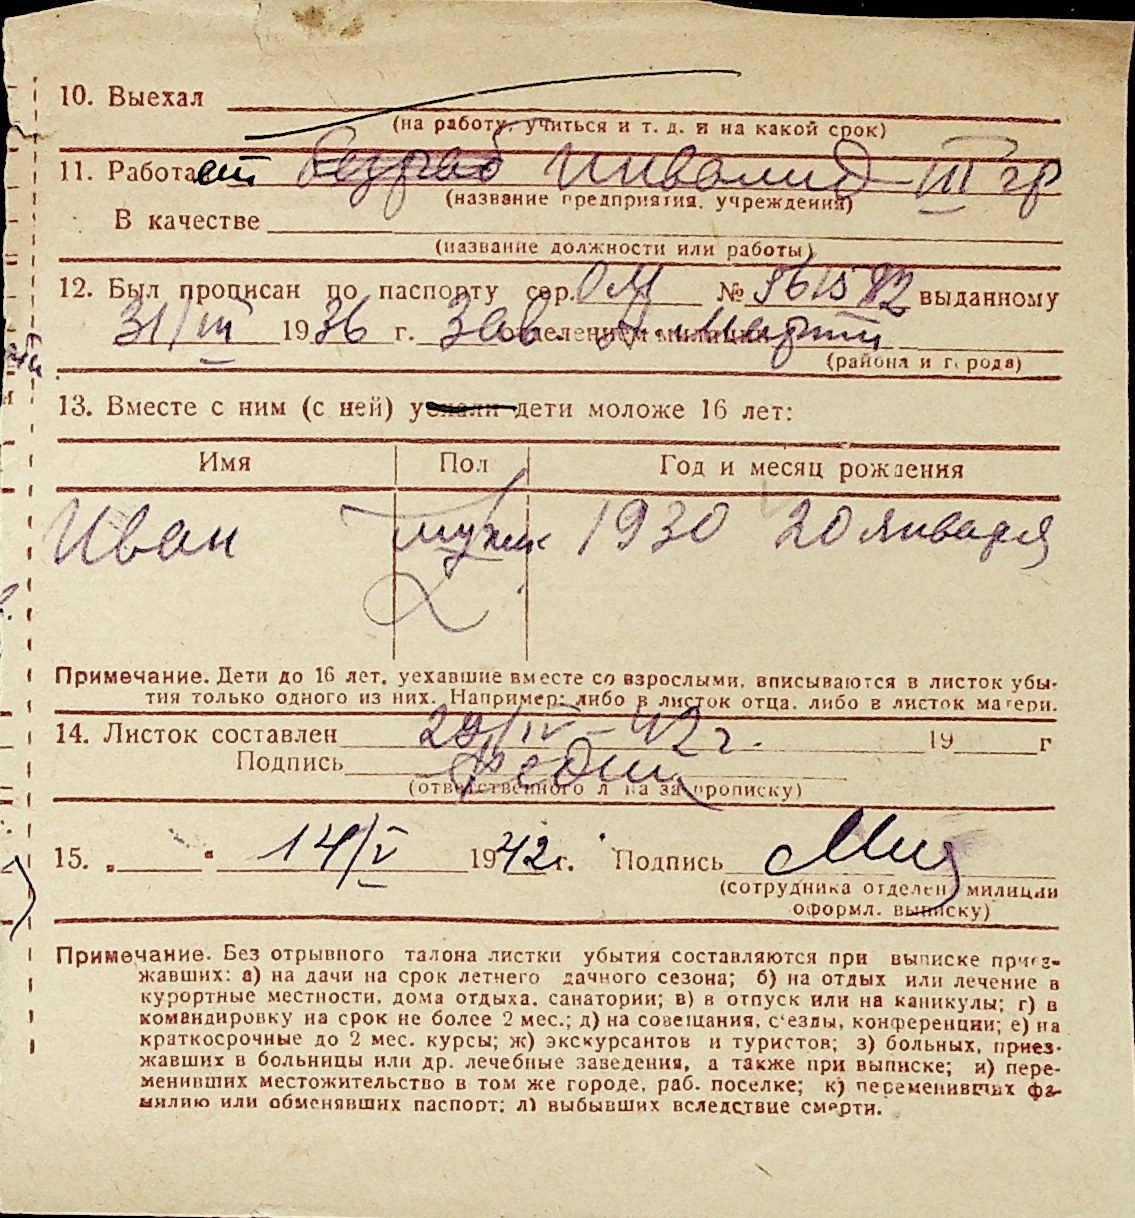 10. Выехал
(на работу, учиться и т. д. и на какой срок)
11. Работает безраб инвалид III гр
(название предприятия, учреждения)
В качестве
(название должности или работы)
12. Был прописан по паспорту сер. ОМ № 561582 выданному
31/III 1936 г. отделением милиции
(района и города)
13. Вместе с ним (с ней) уехали дети моложе 16 лет:
Имя Пол Год и месяц рождения
Иван мужск 1930 20 января
Примечание. Дети до 16 лет, уехавшие вместе со взрослыми, вписываются в листок убы-
тия только одного из них. Например: либо в листок отца, либо в листок матери.
14. Листок составлен 29/IV-42 г. 19 г
Подпись
(ответственного л на за прописку)
15. „ “ 14/V 1942 г. Подпись
(сотрудника отделен. милиции
оформл. выписку)
Примечание. Без отрывного талона листки убытия составляются при выписке приез-
жавших: а) на дачи на срок летнего дачного сезона; б) на отдых или лечение в
курортные местности, дома отдыха, санатории; в) в отпуск или на каникулы; г) в
командировку на срок не более 2 мес.; д) на совещания, с'езды, конференции; е) на
краткосрочные до 2 мес. курсы; ж) экскурсантов и туристов; з) больных, приез-
жавших в больницы или др. лечебные заведения, а также при выписке; и) пере-
менивших местожительство в том же городе, раб. поселке; к) переменивших фа-
милию или обменявших паспорт; л) выбывших вследствие смерти.